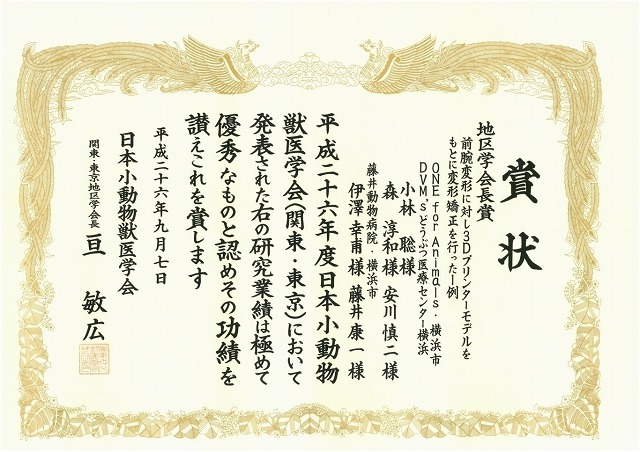 賞状
地区学会長賞
前腕変形に対し3Dプリンターモデルを
もとに変形矯正を行った1例
ONE for Animals・横浜市
DVM'sどうぶつ医療センター横浜
小林 聡様
森 淳和様 安川慎二様
藤井動物病院・横浜市
伊澤幸甫様 藤井康一様
平成二十六年度日本小動物
獣医学会(関東・東京)において
発表された右の研究業績は極めて
優秀なものと認めその功績を
讃えこれを賞します
平成二十六年九月七日
日本小動物獣医学会
関東・東京地区学会長 亘 敏広